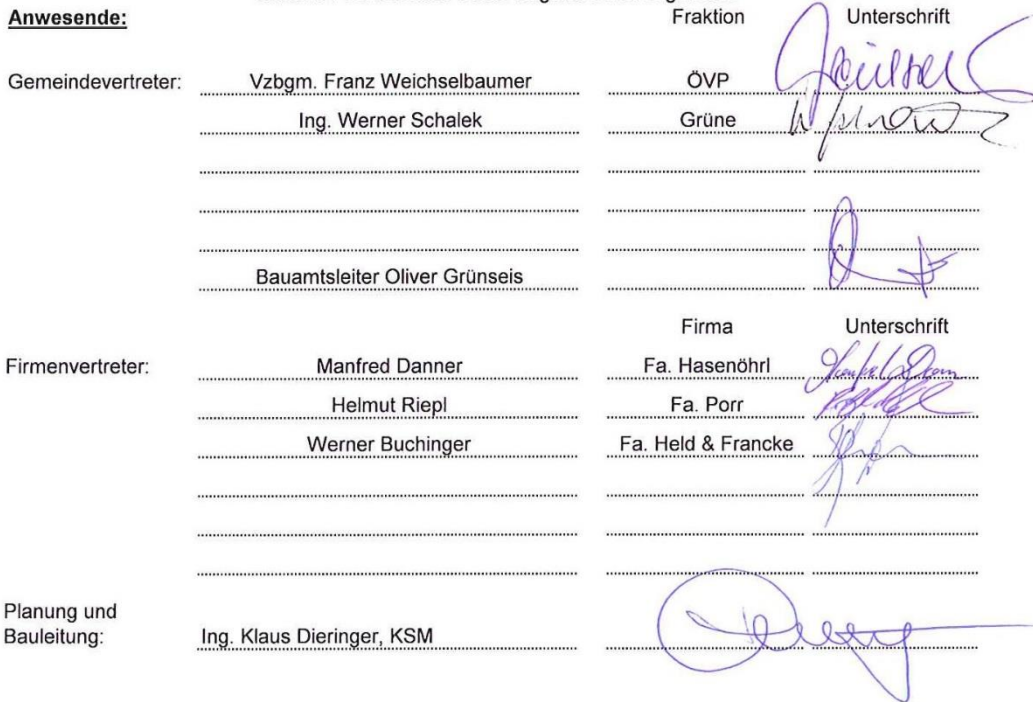 Anwesende: Fraktion Unterschrift
Gemeindevertreter: Vzbgm. Franz Weichselbaumer ÖVP
Ing. Werner Schalek Grüne
Bauamtsleiter Oliver Grünseis
Firma Unterschrift
Firmenvertreter: Manfred Danner Fa. Hasenöhrl
Helmut Riepl Fa. Porr
Werner Buchinger Fa. Held & Francke
Planung und
Bauleitung: Ing. Klaus Dieringer, KSM